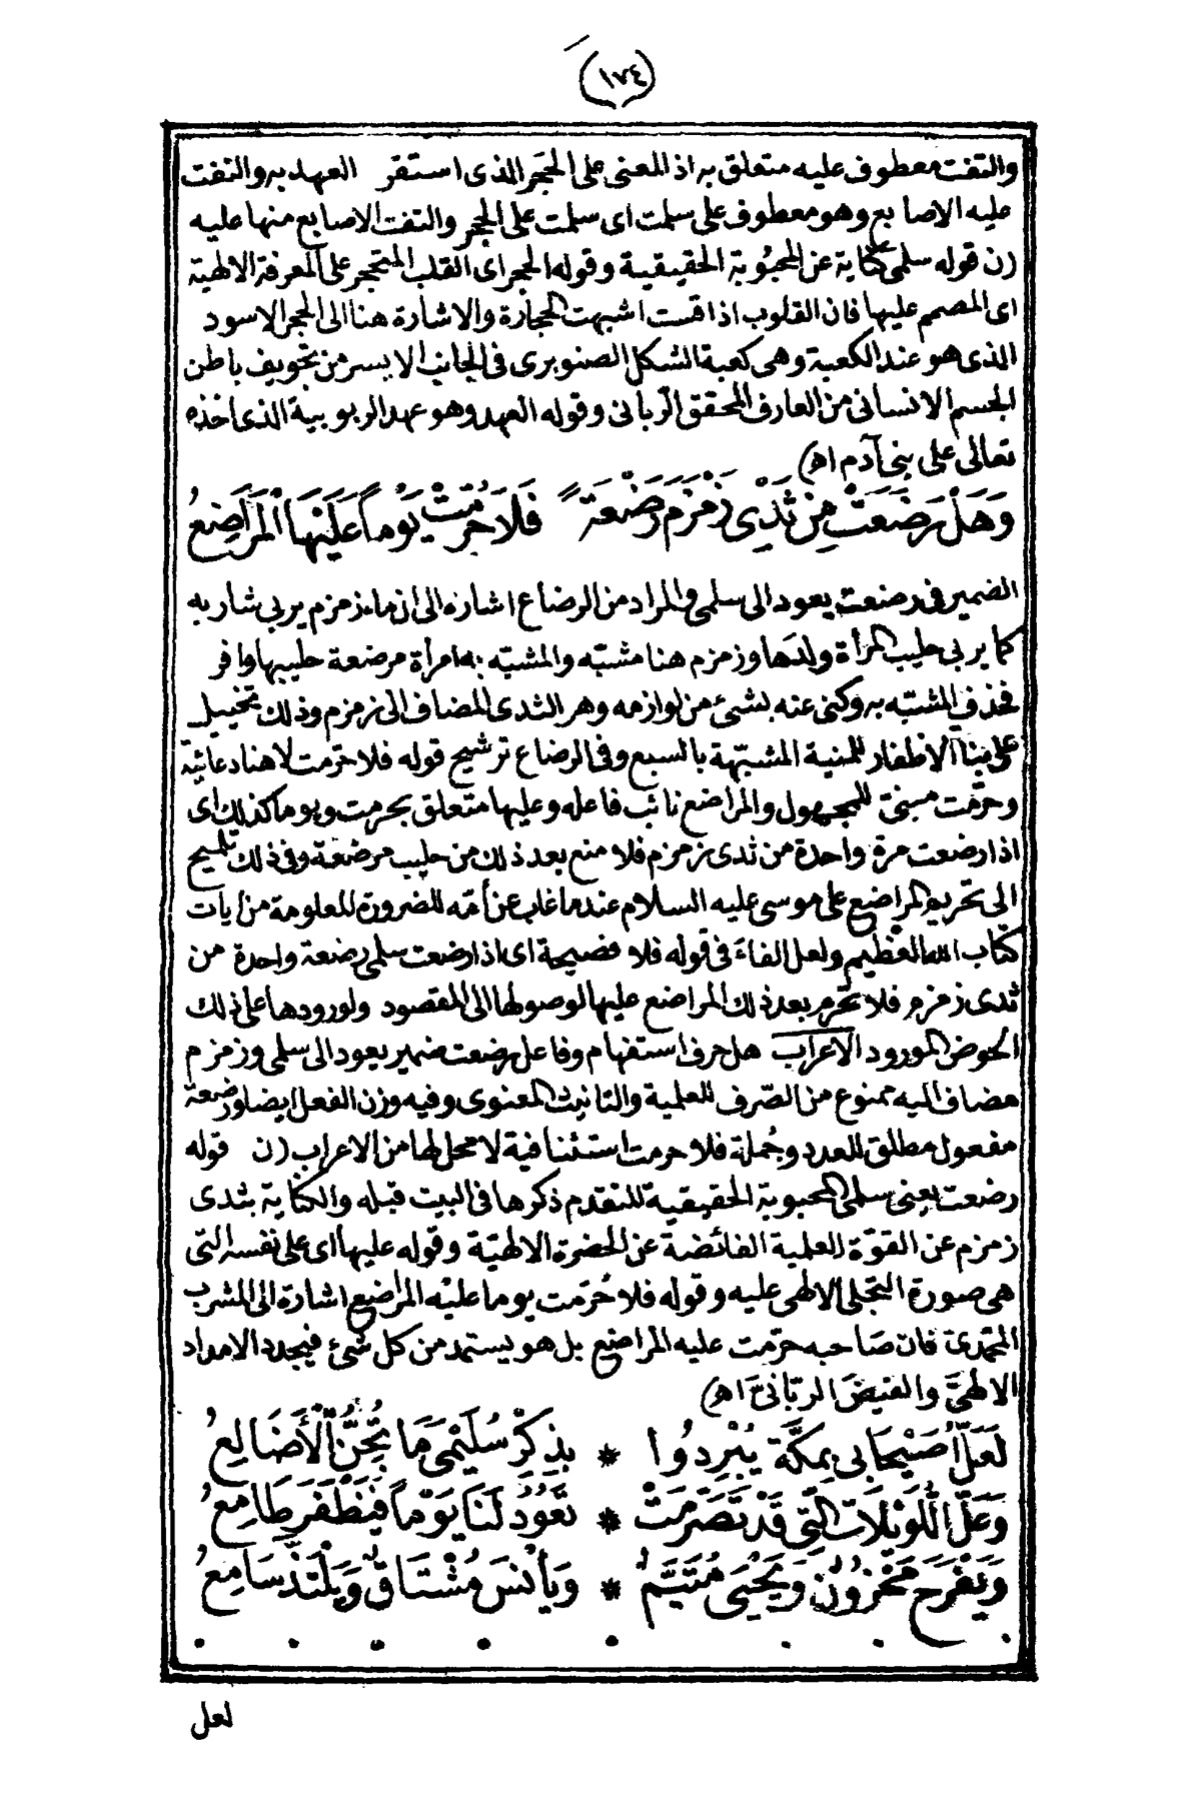 (١٧٤)
والتفت معطوف عليه متعلق به اذ المعنى على الحجر الذى استقر العهد به والتفت
عليه الاصابع وهو معطوف على سلمت اى سلمت على الحجر والتفت الاصابع منها عليه
(ن قوله سلمى كناية عن المحبوبة الحقيقية وقوله الحجر اى القلب المتحجر على المعرفة الالهية
اى المصمم عليها فان القلوب اذا قست اشبهت الحجارة والاشارة هنا الى الحجر الاسود
الذى هو عند الكعبة وهى كعبة الشكل الصنوبرى فى الجانب الايسر من تجويف باطن
الجسم الانسانى من العارف المحقق الربانى وقوله العهد وهو عهد الربوبية الذى اخذه
تعالى على بنى آدم اه)
وَهَلْ رَضَعَتْ مِنْ ثَدْىِ زَمْزَمَ رَضْعَةً فَلَا حُرِّمَتْ يَوْماً عَلَيْهَا الْمَرَاضِعُ
الضمير فى رضعت يعود الى سلمى والمراد من الرضاع اشارة الى ان ماء زمزم يربى شاربه
كما يربى حليب المرأة ولدها وزمزم هنا مشبّه والمشبّه به امرأة مرضعة حليبها وافر
فحذف المشبّه به وكنى عنه بشئ من لوازمه وهو الثدى المضاف الى زمزم وذلك تخييل
على مثال الاظفار للمنية المشبّهة بالسبع وفى الرضاع ترشيح قوله فلا حرّمت لا هنا دعائية
وحرّمت مبنىّ للمجهول والمراضع نائب فاعله وعليها متعلق بحرمت ويوما كذلك اى
اذا رضعت مرة واحدة من ثدى زمزم فلا منع بعد ذلك من حليب مرضعة وفى ذلك تلميح
الى تحريم المراضع على موسى عليه السلام عندما غاب عن أمّه للضرورة المعلومة من ايات
كتاب الله العظيم ولعل الفاء فى قوله فلا فصيحة اى اذا رضعت سلمى رضعة واحدة من
ثدى زمزم فلا تحرم بعد ذلك المراضع عليها لوصولها الى المقصود ولورودها على ذلك
الحوض المورود الاعراب هل حرف استفهام وفاعل رضعت ضمير يعود الى سلمى وزمزم
مضاف اليه ممنوع من الصّرف للعلمية والتانيث المعنوى وفيه وزن الفعل ايضا ورضعة
مفعول مطلق للعدد وجُملة فلا حرمت استئنافية لا محل لها من الاعراب (ن قوله
رضعت يعنى سلمى المحبوبة الحقيقية للتقدم ذكرها فى البيت قبله والكناية بثدى
زمزم عن القوّة العلمية الفائضة عن الحضرة الالهيّة وقوله عليها اى على نفسه التى
هى صورة التجلى الالهى عليه وقوله فلا حُرّمت يوما عليْه المراضع اشارة الى المشرب
المحمدىّ فان صَاحبه حرّمت عليه المراضع بل هو يستمد من كل شئ فيجدد الامداد
الالهىّ والفيض الربّانىّ اه)
لَعَلَّ أُصَيْحَابِى بِمَكَّةَ يُبْرِدُوا * بِذِكْرِ سُلَيْمَى مَا تُجِنُّ الْأَضَالِعُ
وَعَلَّ اللُّوَيْلَاتِ الَّتِى قَدْ تَصَرَّمَتْ * تَعُودُ لَنَا يَوْماً فَيَظْفَرَ طَامِعُ
وَيَفْرَحَ مَحْزُونٌ وَيَحْيَى مُتَيَّمٌ * وَيَأْنَسَ مُشْتَاقٌ وَيَلْتَذَّ سَامِعُ
لعل